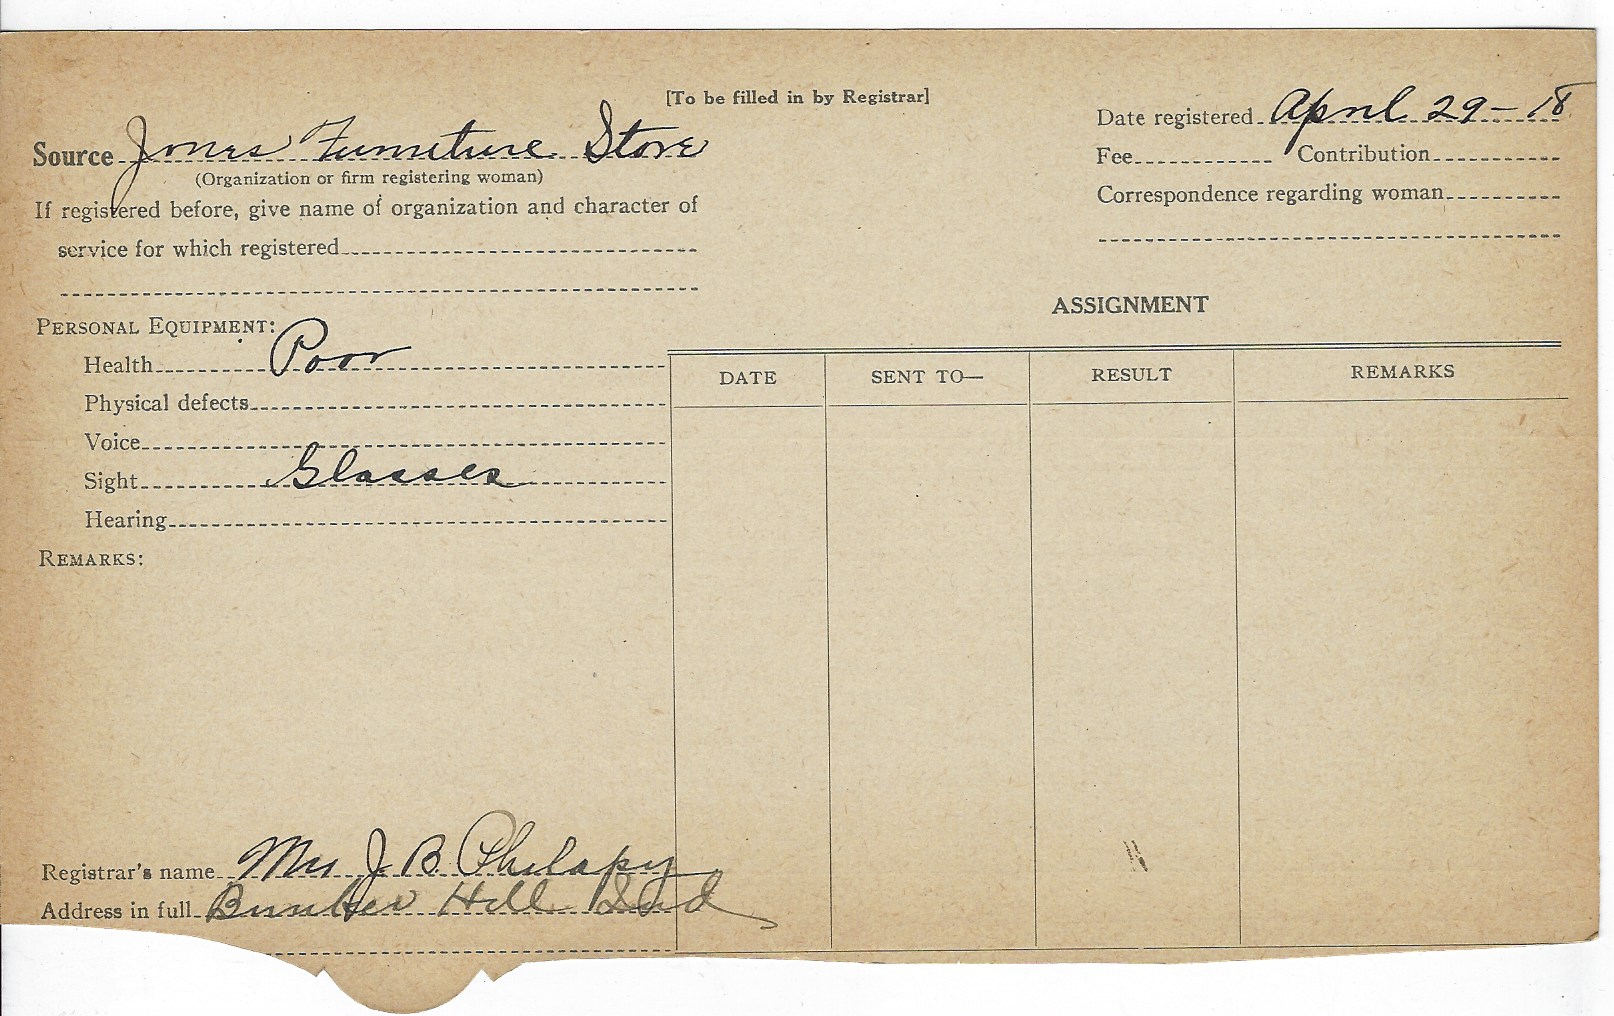 [To be filled in by Registrar]
Source Jones Furniture Store
(Organization or firm registering woman)
If registered before, give name of organization and character of
service for which registered
Date registered April 29-18
Fee Contribution
Correspondence regarding woman
PERSONAL EQUIPMENT:
Health Poor
Physical defects
Voice
Sight Glasses
Hearing
REMARKS:
ASSIGNMENT
DATE SENT TO— RESULT REMARKS
Registrar's name Mrs J. B. Philapy
Address in full Bunker Hill Ind